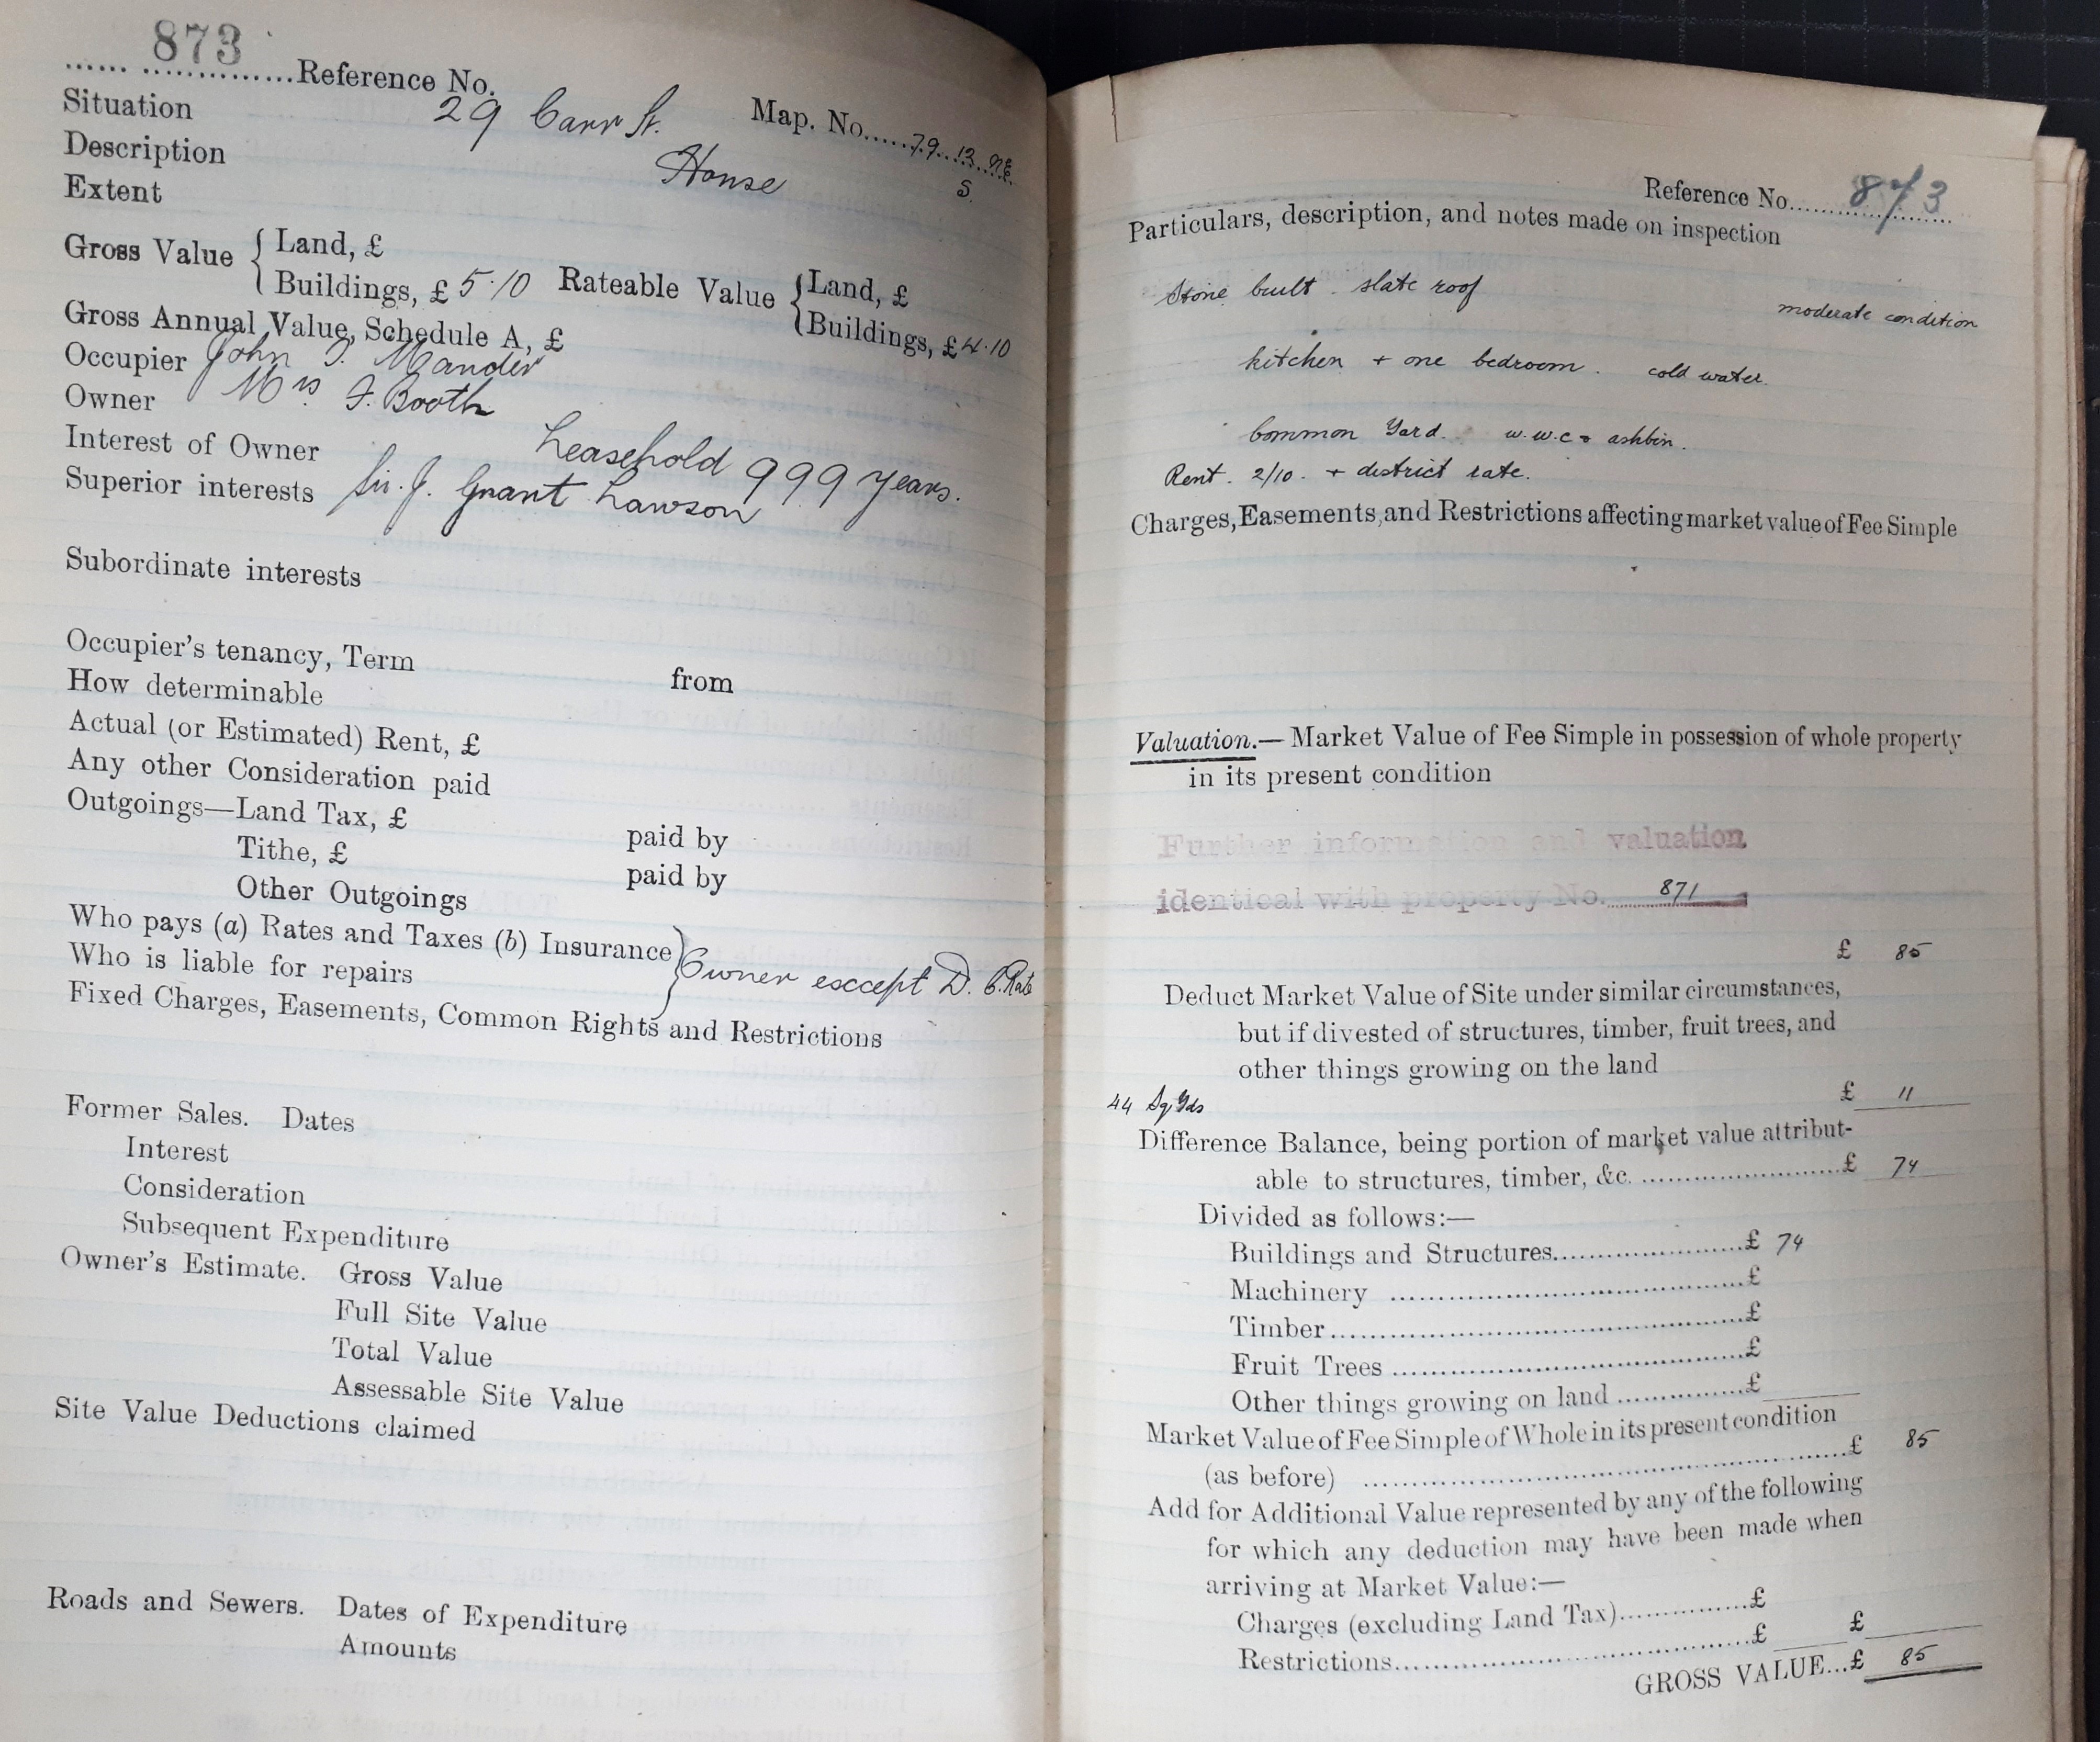 873
...... ..............Reference No.
Situation 29 Carr St. Map. No.....79..13..NE
Description House S.
Extent
Gross Value { Land, £
Buildings, £ 5·10 Rateable Value { Land, £
Buildings, £4·10
Gross Annual Value, Schedule A, £
Occupier John T. Mander
Owner Mrs F. Booth
Interest of Owner Leasehold 999 years.
Superior interests Sir. J. Grant Lawson
Subordinate interests
Occupier's tenancy, Term from
How determinable
Actual (or Estimated) Rent, £
Any other Consideration paid
Outgoings—Land Tax, £ paid by
Tithe, £ paid by
Other Outgoings
Who pays (a) Rates and Taxes (b) Insurance
Who is liable for repairs } Owner except D. C. Rate
Fixed Charges, Easements, Common Rights and Restrictions
Former Sales. Dates
Interest
Consideration
Subsequent Expenditure
Owner's Estimate. Gross Value
Full Site Value
Total Value
Assessable Site Value
Site Value Deductions claimed
Roads and Sewers. Dates of Expenditure
Amounts
Reference No. 873
Particulars, description, and notes made on inspection
Stone built. slate roof moderate condition
kitchen + one bedroom. cold water.
Common Yard. w.w.c & ashbin.
Rent. 2/10. + district rate.
Charges, Easements, and Restrictions affecting market value of Fee Simple
Valuation.—Market Value of Fee Simple in possession of whole property
in its present condition
Further information and valuation
identical with property No. 871
£ 85
Deduct Market Value of Site under similar circumstances,
but if divested of structures, timber, fruit trees, and
other things growing on the land
44 Sq Yds £ 11
Difference Balance, being portion of market value attribut-
able to structures, timber, &c. ........................£ 74
Divided as follows:—
Buildings and Structures........................£ 74
Machinery ........................£
Timber........................£
Fruit Trees ........................£
Other things growing on land ...............£
Market Value of Fee Simple of Whole in its present condition
(as before) ........................£ 85
Add for Additional Value represented by any of the following
for which any deduction may have been made when
arriving at Market Value:—
Charges (excluding Land Tax)...............£
Restrictions........................£ £
GROSS VALUE...£ 85